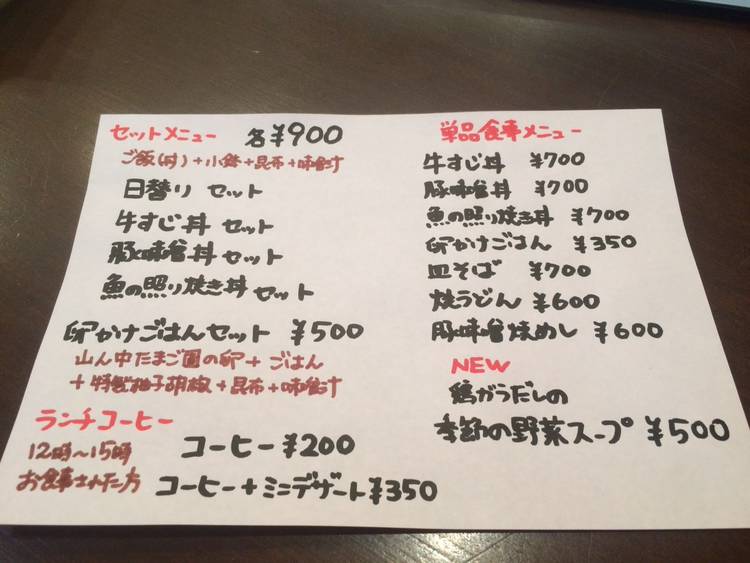 セットメニュー 各¥900
ご飯(丼)+小鉢+昆布+味噌汁
日替り セット
牛すじ丼 セット
豚味噌丼 セット
魚の照り焼き丼 セット
卵かけごはんセット ¥500
山ん中たまご園の卵+ごはん
+特製柚子胡椒+昆布+味噌汁
ランチコーヒー
12時~15時
お食事された方
コーヒー¥200
コーヒー+ミニデザート¥350
単品食事メニュー
牛すじ丼 ¥700
豚味噌丼 ¥700
魚の照り焼き丼 ¥700
卵かけごはん ¥350
皿そば ¥700
焼うどん ¥600
豚味噌焼めし ¥600
NEW
鶏がらだしの
季節の野菜スープ ¥500